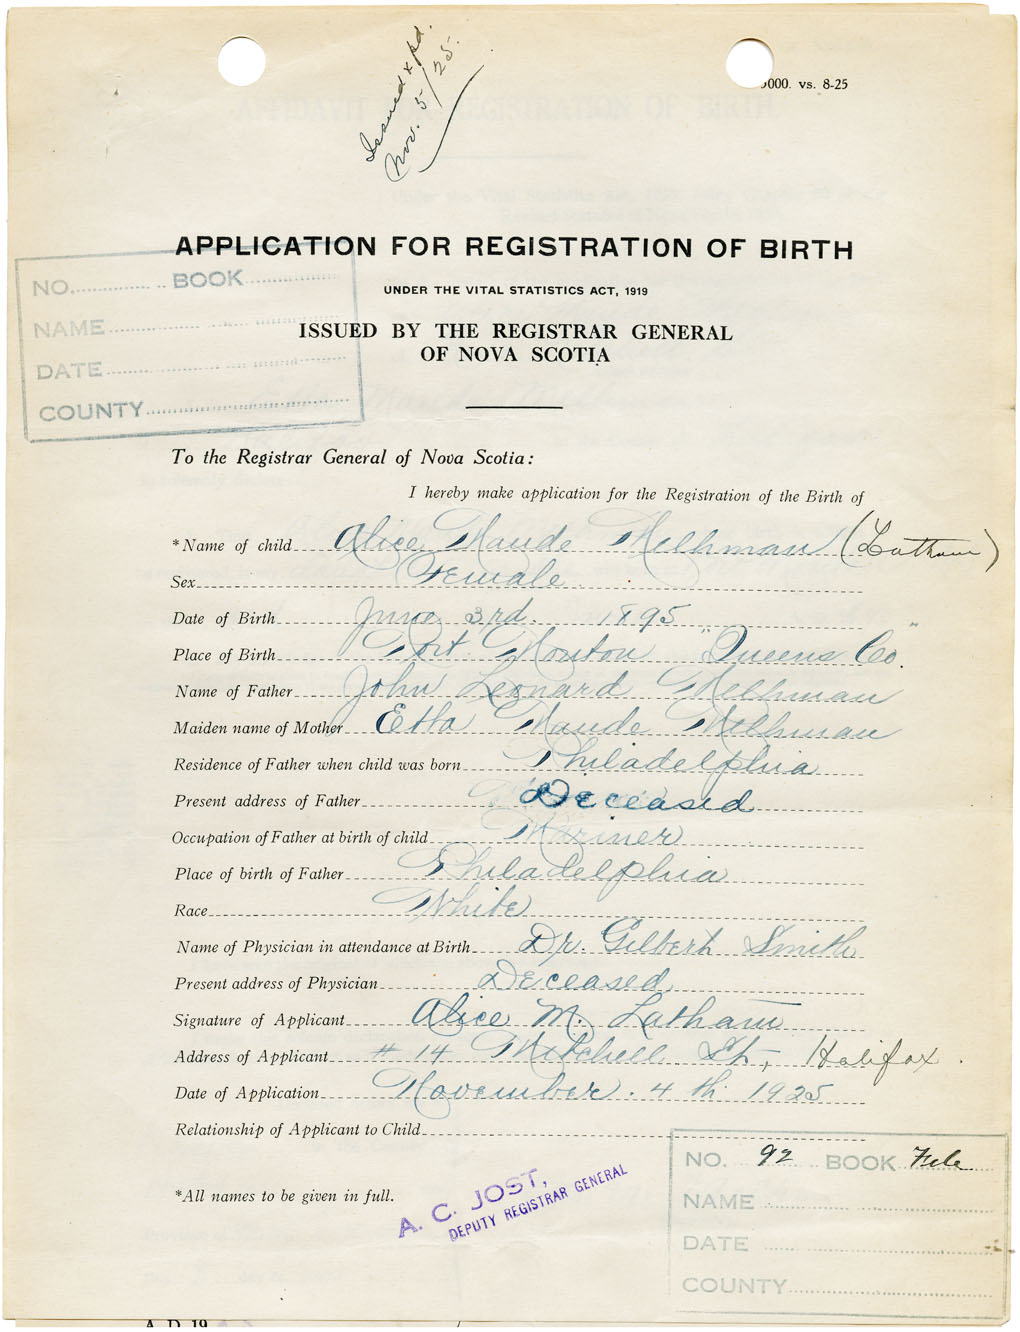 Issued & pd.
Nov. 5/25.
5000. vs. 8-25
APPLICATION FOR REGISTRATION OF BIRTH
UNDER THE VITAL STATISTICS ACT, 1919
ISSUED BY THE REGISTRAR GENERAL
OF NOVA SCOTIA
NO. BOOK
NAME
DATE
COUNTY
To the Registrar General of Nova Scotia:
I hereby make application for the Registration of the Birth of
*Name of child Alice Maude Mellhman (Latham)
Sex Female
Date of Birth June 3rd. 1895
Place of Birth Port Mouton "Queens Co."
Name of Father John Leonard Mellhman
Maiden name of Mother Etta Maude Mellhman
Residence of Father when child was born Philadelphia
Present address of Father Deceased
Occupation of Father at birth of child Mariner
Place of birth of Father Philadelphia
Race White
Name of Physician in attendance at Birth Dr. Gilbert Smith
Present address of Physician Deceased
Signature of Applicant Alice M. Latham
Address of Applicant # 14 Mitchell St., Halifax.
Date of Application November. 4th. 1925
Relationship of Applicant to Child
NO. 92 BOOK File
NAME
DATE
COUNTY
*All names to be given in full.
A. C. JOST,
DEPUTY REGISTRAR GENERAL
A. D. 19